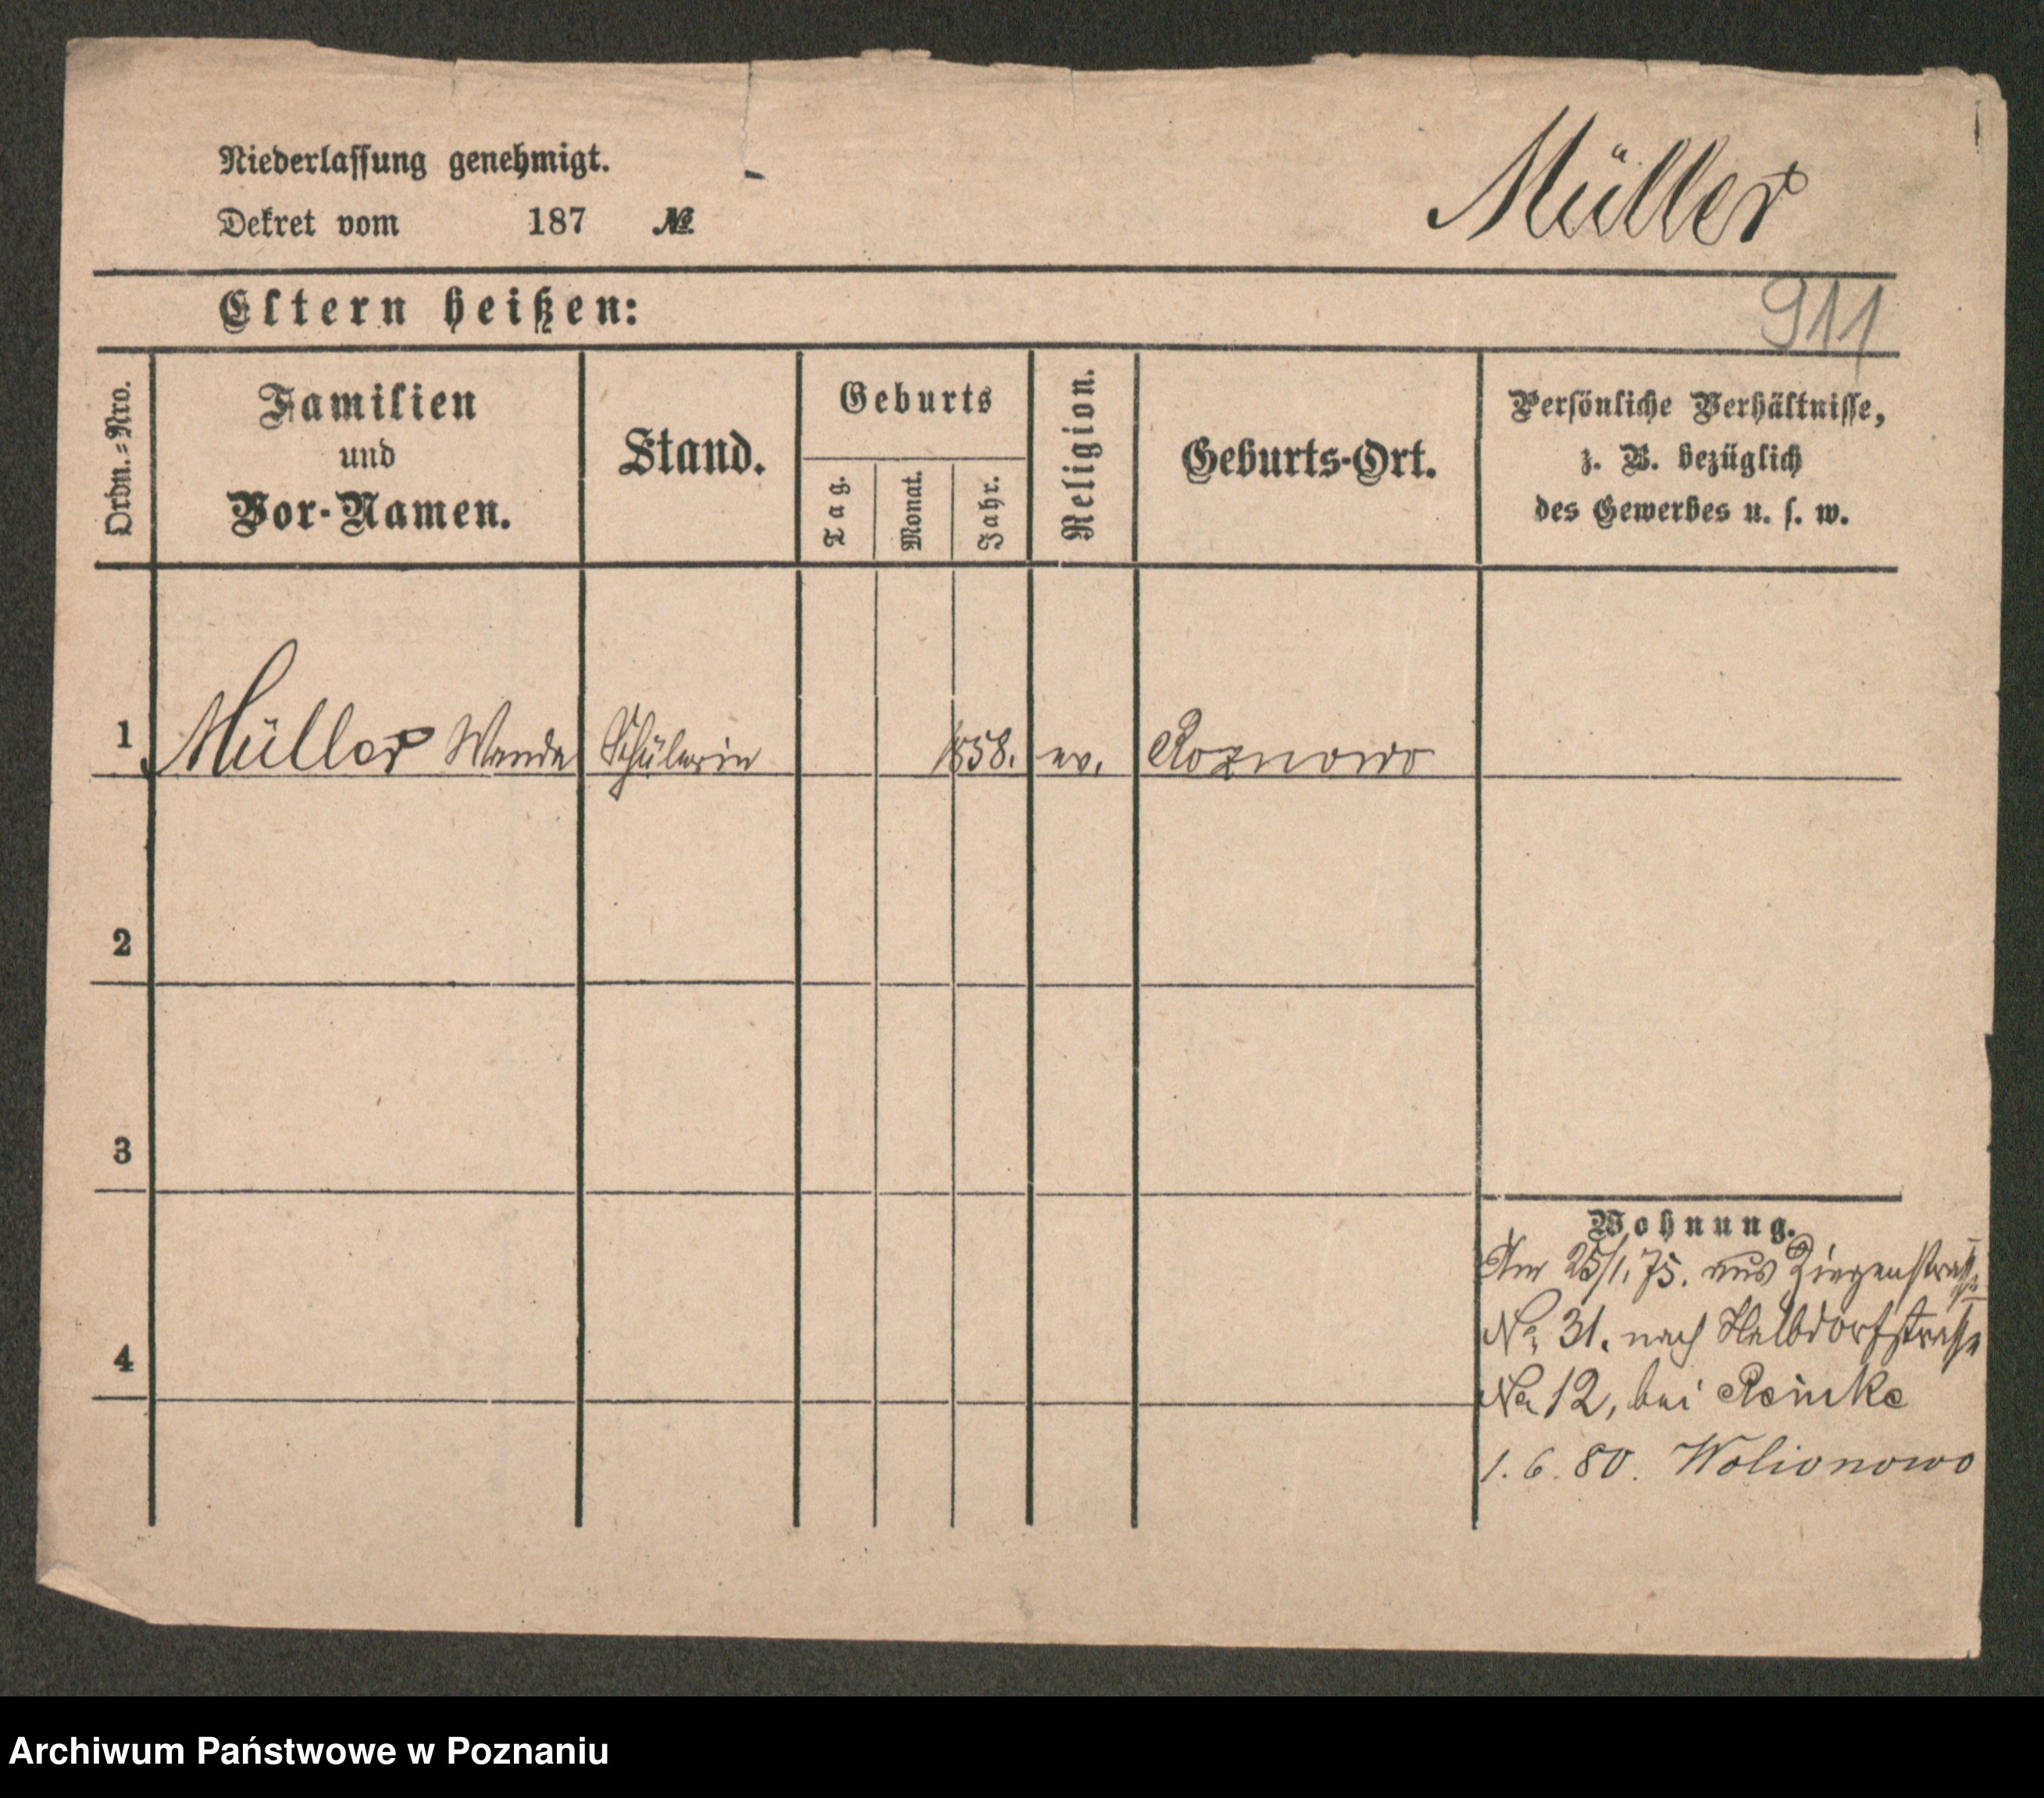 Niederlassung genehmigt.
Dekret vom 187 №
Müller
Eltern heißen:
911
Ordn.-Nro.
Familien
und
Vor-Namen.
Stand.
Geburts
Tag.
Monat.
Jahr.
Religion.
Geburts-Ort.
Persönliche Verhältnisse,
z. B. bezüglich
des Gewerbes u. s. w.
1 Müller Wanda Schülerin 1858. ev. Roznowo
2
3
4
Wohnung.
Am 25/1.75. aus Ziegenstraße
No 31. nach Halbdorfstraße
No 12, bei Reinke
1. 6. 80. Wolionowo
Archiwum Państwowe w Poznaniu